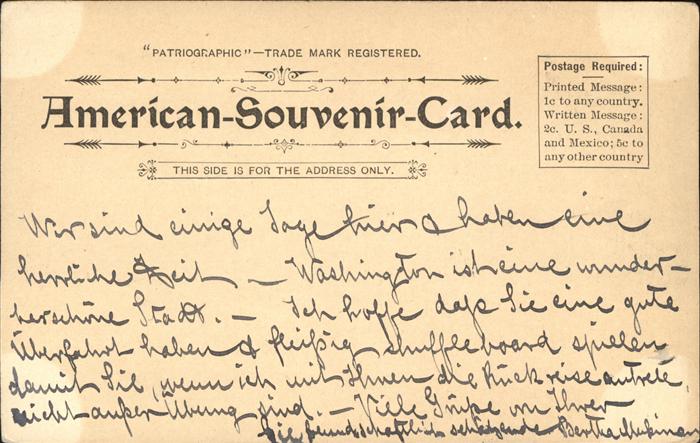 "PATRIOGRAPHIC"—TRADE MARK REGISTERED.
American-Souvenir-Card.
THIS SIDE IS FOR THE ADDRESS ONLY.
Postage Required:
Printed Message:
1c to any country.
Written Message:
2c. U. S., Canada
and Mexico; 5c to
any other country
Wir sind einige Tage hier & haben eine
herrliche Zeit — Washington ist eine wunder-
herschöne Stadt. — Ich hoffe daß Sie eine gute
Überfahrt haben & fleißig shuffleboard spielen
damit Sie, wenn ich mit Ihnen die Rückreise antrete
nicht außer Übung sind. — Viele Grüße von Ihrer
Sie freundschaftlich schätzende Bertha